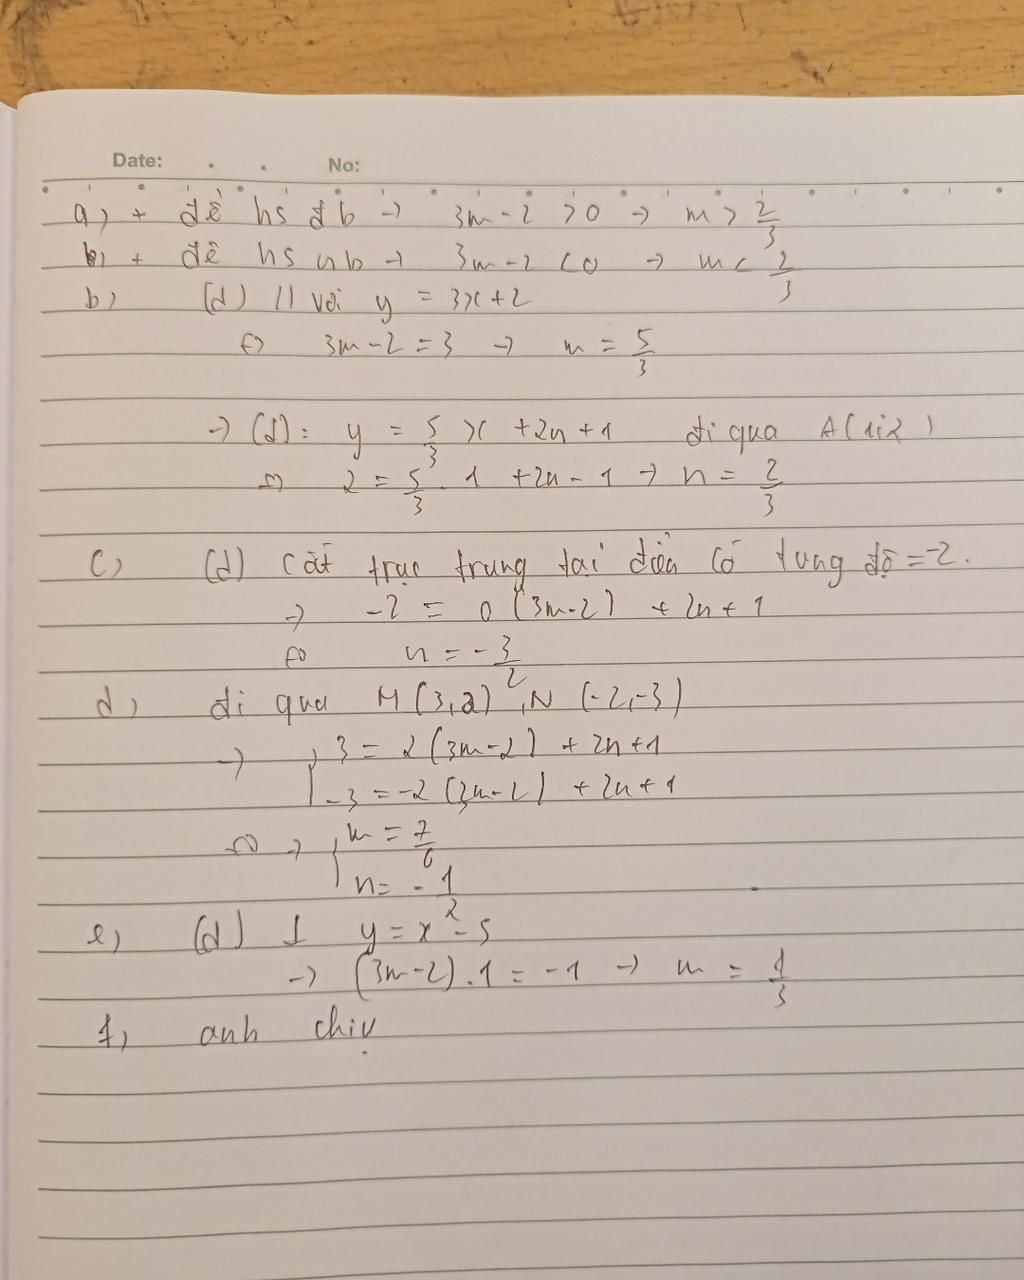 Date: No:
a) + để hs đb → 3m-2 >0 → m > 2/3
b) + để hs nb → 3m-2 <0 → m < 2/3
b) (d) // với y = 3x+2
⇔ 3m-2=3 → m = 5/3
→ (d): y = 5/3 x +2n+1 đi qua A(1;2)
⇔ 2 = 5/3 . 1 +2n-1 → n = 2/3
c) (d) cắt trục trung tại điểm có tung độ =-2.
→ -2 = 0(3m-2) + 2n+1
⇔ n = -3/2
d) đi qua M(3,2), N(-2,-3)
→ { 3 = 2(3m-2) + 2n+1
-3 = -2(3m-2) + 2n+1
⇔ → { m = 7/6
n = -1/2
e) (d) ⊥ y = x - 5
→ (3m-2).1 = -1 → m = 1/3
f) anh chịu